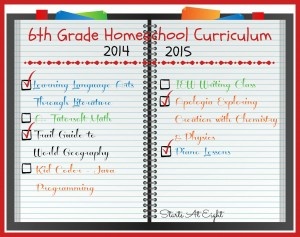 6th Grade Homeschool Curriculum
2014 2015
Learning Language Arts
Through Literature
Teletouch Math
Trail Guide to
World Geography
Kid Coder - Java
Programming
IEW Writing Class
Apologia Exploring
Creation with Chemistry
& Physics
Piano Lessons
Starts At Eight